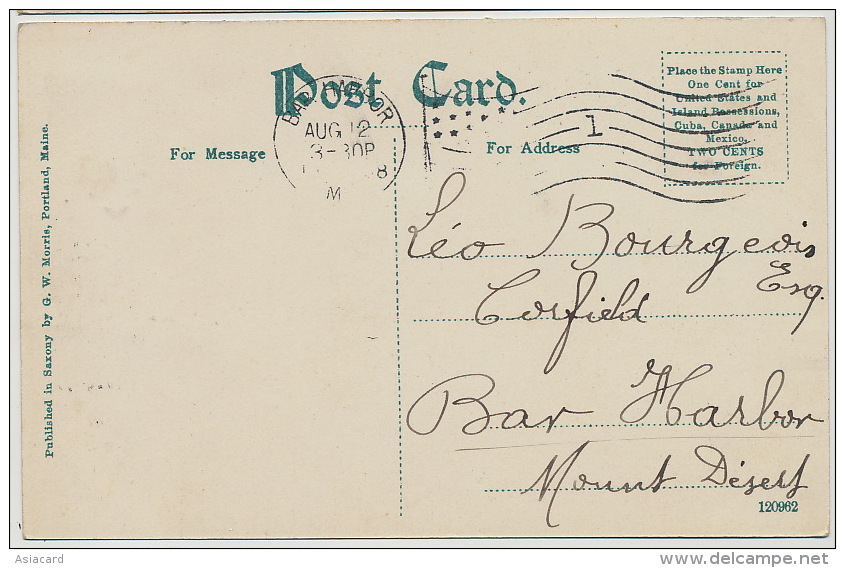 Post Card.
Place the Stamp Here
One Cent for
United States and
Island Possessions,
Cuba, Canada and
Mexico,
TWO CENTS
for Foreign.
BAR HARBOR
AUG 12
3-30P
8
M
1
For Message
For Address
Léo Bourgeois
Esq.
Corfield
Bar Harbor
Mount Désert
120962
Published in Saxony by G. W. Morris, Portland, Maine.
Asiacard
delcampe.net